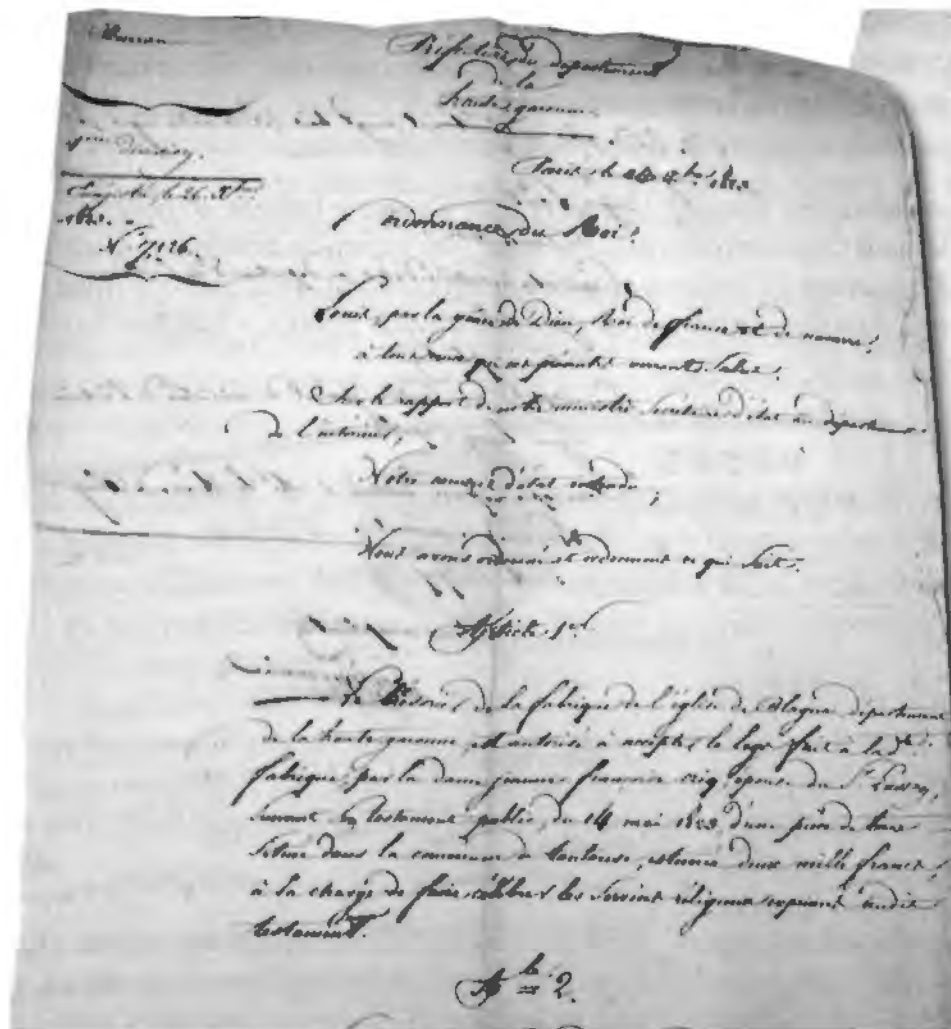 Préfecture du département
de la
haute garonne
Division
Enregistré le 26 Xbre
N° 7126
Paris le Xbre 1823
ordonnance du Roi
Louis, par la grâce de Dieu, Roi de france et de navarre,
à tous ceux qui ces présentes verront, Salut.
Sur le rapport de notre ministre Secrétaire d'état au département
de l'intérieur,
Notre conseil d'état entendu,
Nous avons ordonné et ordonnons ce qui Suit.
Article 1er
Le Trésorier de la fabrique de l'église de département
de la haute garonne, est autorisé à accepter le legs fait à la dte
fabrique, par la dame jeanne françoise épouse du Sr
Suivant Son testament public, du 14 mai d'une pièce de terre
Située dans la commune de toulouse, estimée deux mille francs,
à la charge de faire célébrer les Services religieux exprimés audit
testament.
Art 2.